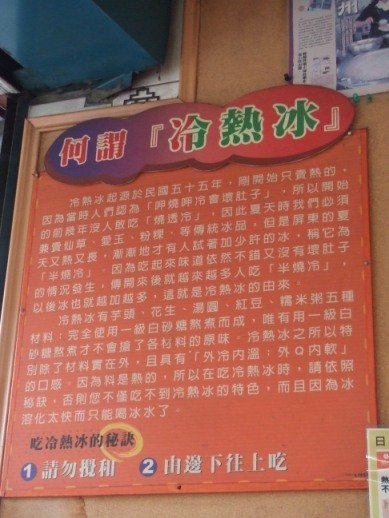 何謂『冷熱冰』
冷熱冰起源於民國五十五年,剛開始只賣熱的。
因為當時人們認為「呷燒呷冷會壞肚子」,所以開始
的前幾年沒人敢吃「燒透冷」,因此夏天時我們必須
兼賣仙草、愛玉、粉粿、等傳統冰品。但是屏東的夏
天又熱又長,漸漸地才有人試著加少許的冰,稱它為
「半燒冷」。因為吃起來味道依然不錯又沒有壞肚子
的情況發生,傳開來後就越來越多人吃「半燒冷」,
以後冰也就越加越多,這就是冷熱冰的由來。
冷熱冰有芋頭、花生、湯圓、紅豆、糯米粥五種
材料;完全使用一級白砂糖熬煮而成,唯有用一級白
砂糖熬煮才不會搶了各材料的原味。冷熱冰之所以特
別除了材料實在外,且具有「外冷內溫;外Q內軟」
的口感。因為料是熱的,所以在吃冷熱冰時,請依照
秘訣,否則您不僅吃不到冷熱冰的特色,而且因為冰
溶化太快而只能喝冰水了。
吃冷熱冰的秘訣
1 請勿攪和 2 由邊下往上吃
州
日
熱
不